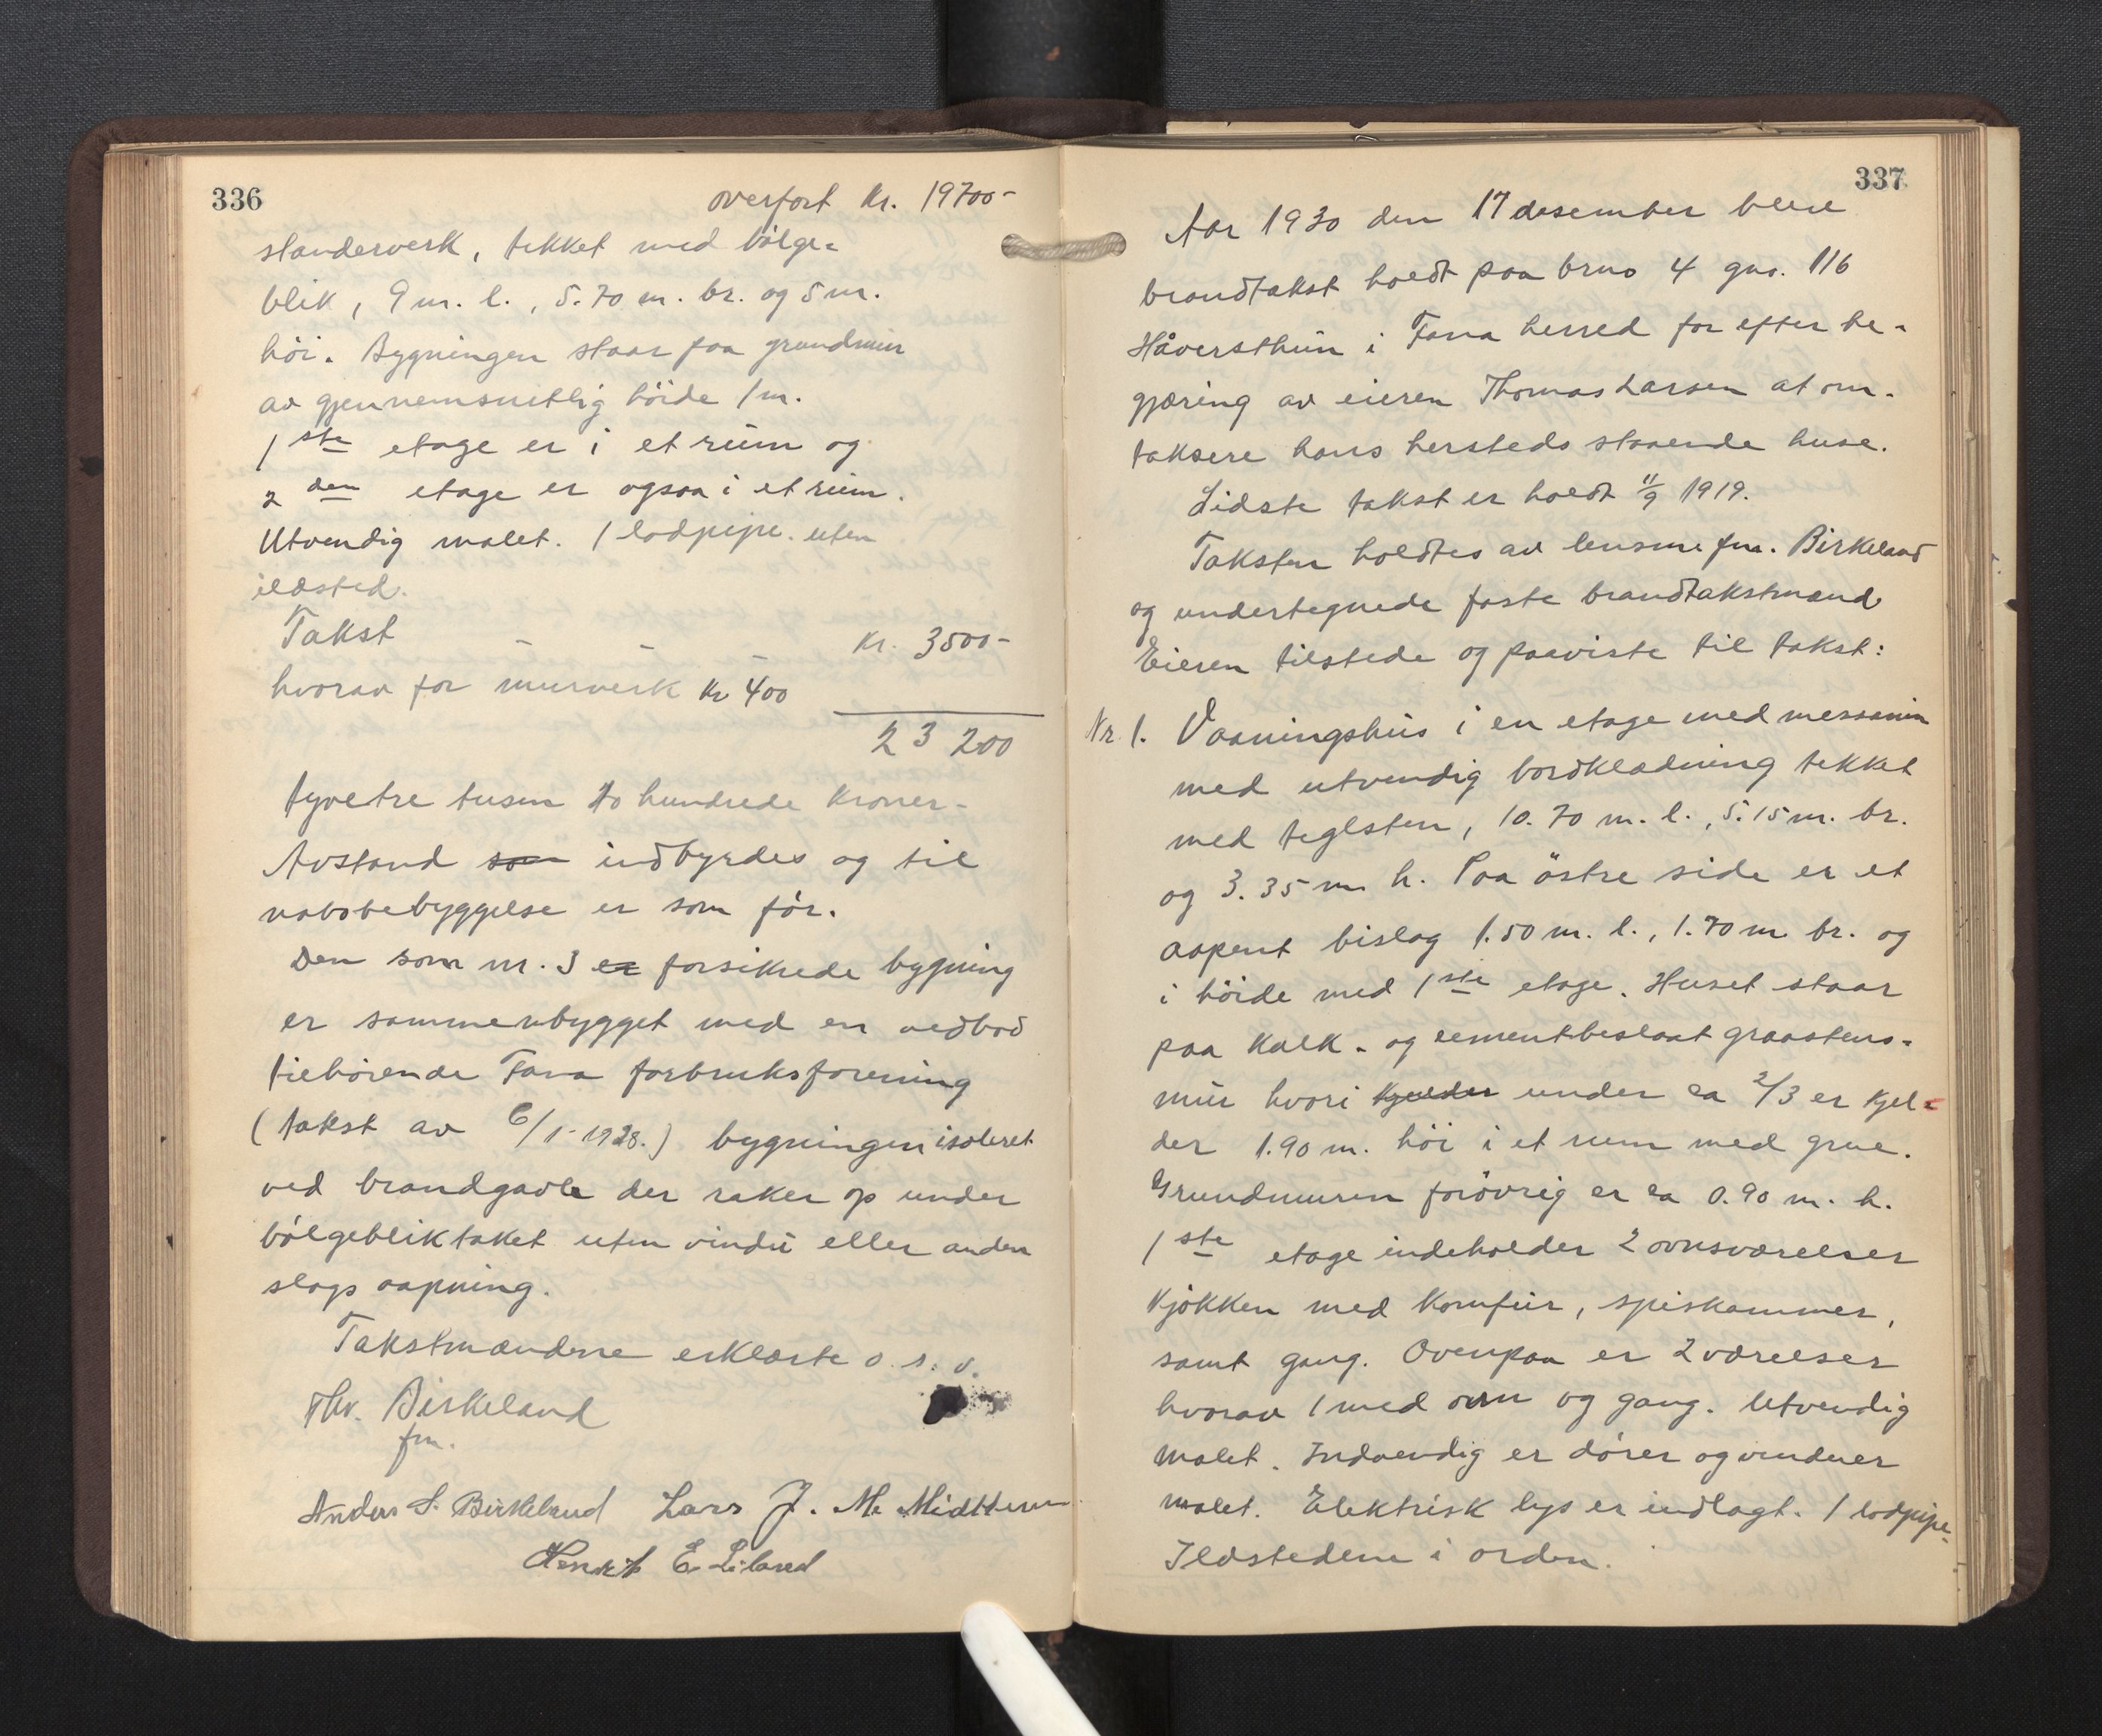 336
overført Kr. 19700-
standerverk, tekket med bölge-
blik, 9 m. l., 5.70 m. br. og 5 m.
höi. Bygningen staar paa grundmur
av gjennemsnitlig höide 1 m.
1ste etage er i et rum og
2den etage er ogsaa i et rum.
Utvendig malet. 1 lodpipe. uten
ildsted.
Takst - - - Kr. 3500-
hvorav for murverk Kr 400
23 200
tyvetre tusen to hundrede Kroner-
Avstand som indbyrdes og til
nabobebyggelse er som för.
Den som nr. 3 er forsikrede bygning
er sammenbygget med en vedbod
tilhörende Fana forbruksforening
(takst av 6/1-1928.) bygningen isoleret
ved brandgavle der raker op under
bölgebliktaket uten vindu eller anden
slags aapning.
Takstmændene erklærte o. s. v.
Thv. Birkeland
fm.
Anders S. Birkeland Lars J. M. Midttun
Henrik E. Liland
337
Aar 1930 den 17 desember blev
brandtakst holdt paa brno 4 gno. 116
Håversthun i Fana herred for efter be-
gjæring av eieren Thomas Larsen at om-
taksere hans hersteds staaende huse.
Sidste takst er holdt 11/9 1919.
Taksten holdtes av lensm. fm. Birkeland
og undertegnede faste brandtakstmænd
Eieren tilstede og paaviste til takst:
Nr. 1. Vaaningshus i en etage med messanin
med utvendig bordklædning tekket
med teglsten, 10.70 m. l., 5.15 m. br.
og 3.35 m h. Paa östre side er et
aapent bislag 1.50 m. l., 1.70 m br. og
i höide med 1ste etage. Huset staar
paa kalk- og cementbeslaat graastens-
mur hvori kjælder under ca 2/3 er kjel-
der 1.90 m. höi i et rum med grue.
Grundmuren forövrig er ca 0.90 m. h.
1ste etage indeholder 2 ovnsværelser
kjökken med komfur, spiskammer,
samt gang. Ovenpaa er 2 værelser
hvorav 1 med ovn og gang. Utvendig
malet. Indvendig er dörer og vinduer
malet. Elektrisk lys er indlagt. 1 lodpipe.
Ildstedene i orden.